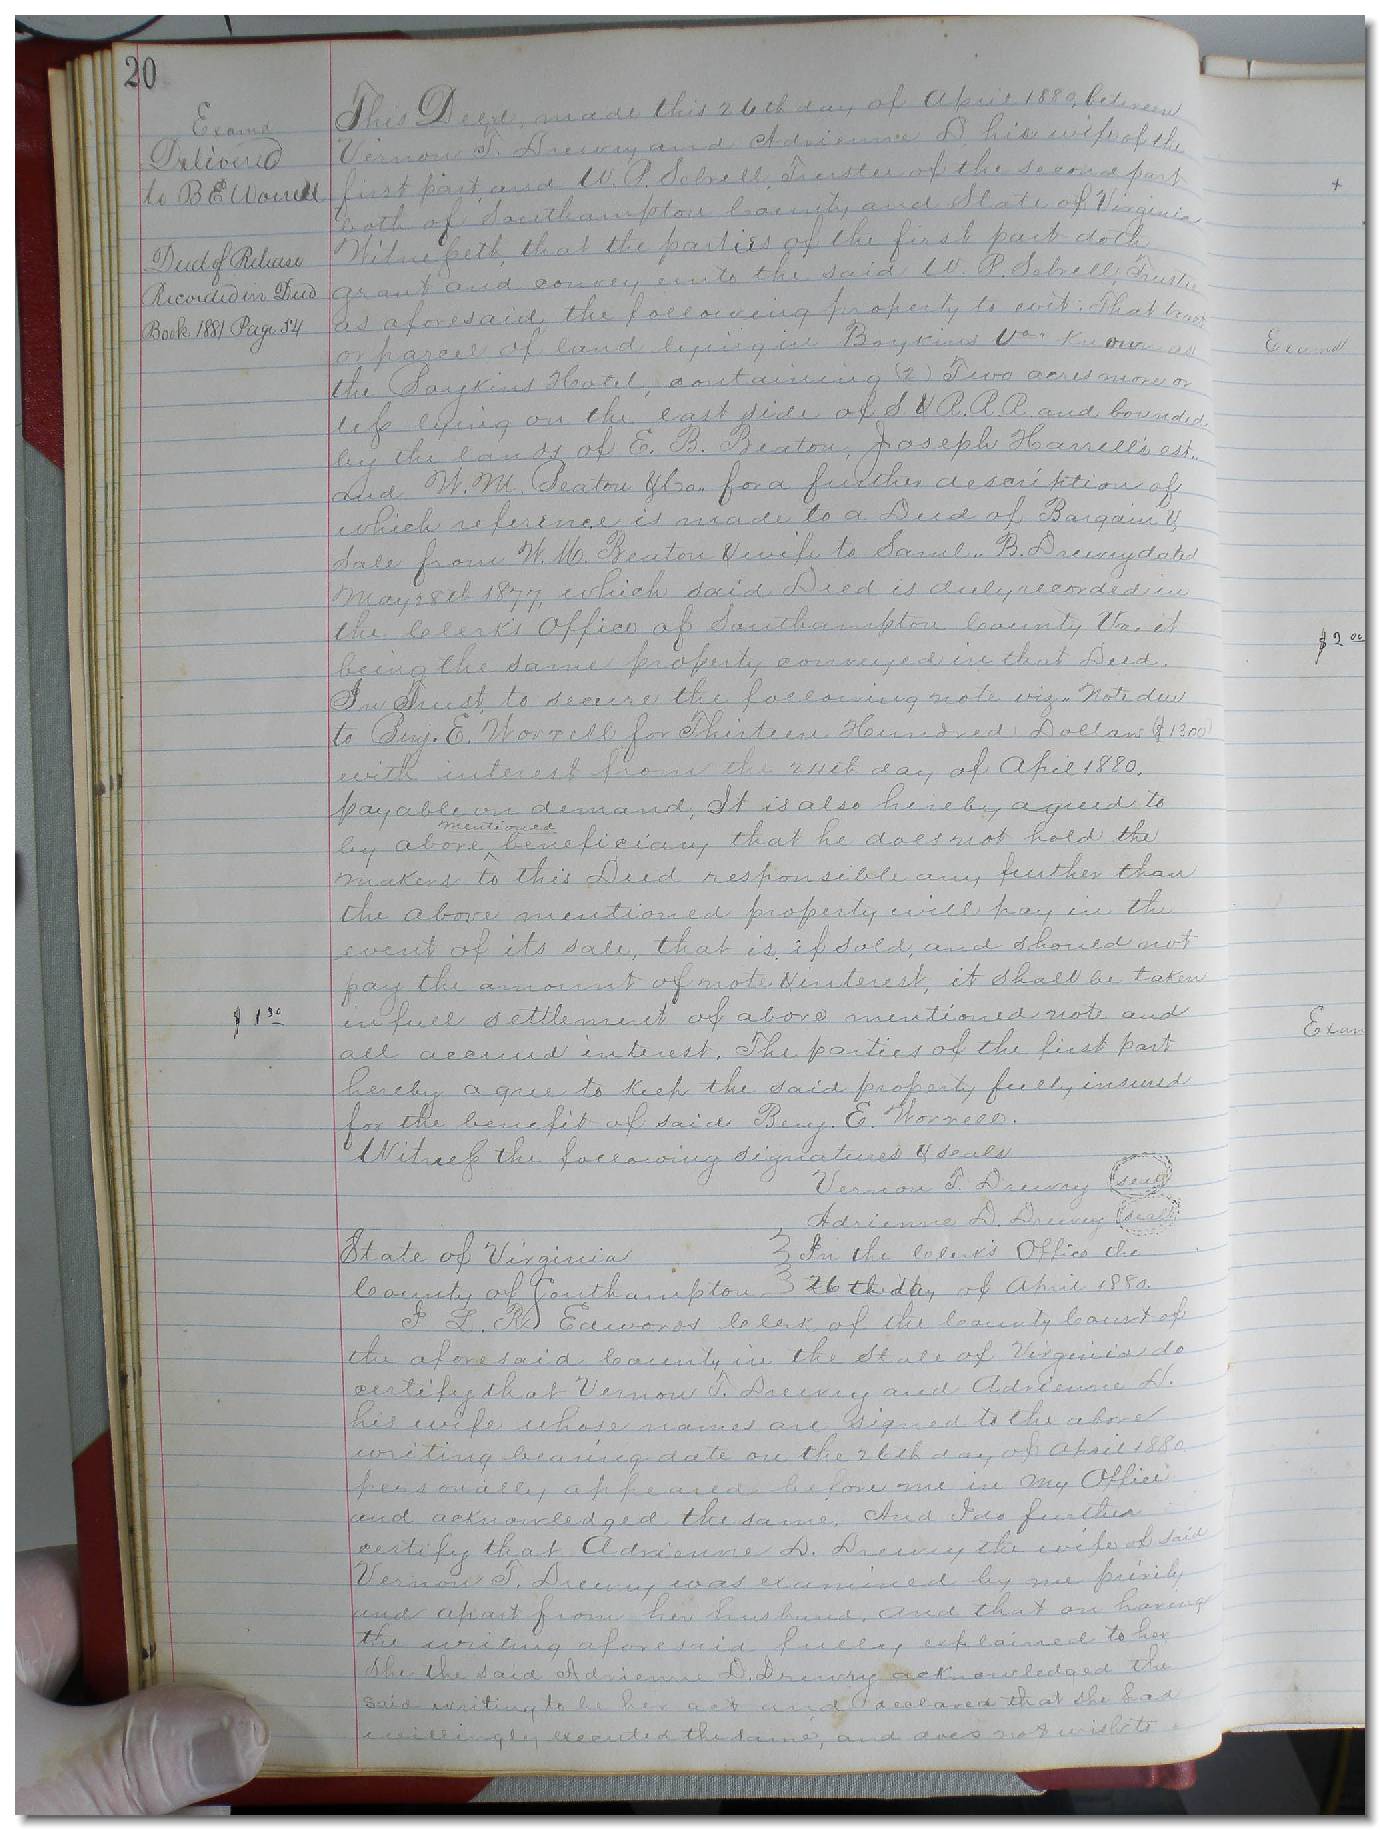 20
Examd
Delivered
to B E Worrell
Deed of Release
Recorded in Deed
Book 1881 Page 54
$1 30
This Deed, made this 26th day of April 1880, between
Vernon T. Drewry and Adrienne D. his wife of the
first part and W. P. Sebrell, Trustee of the second part
both of Southampton County and State of Virginia
Witnesseth that the parties of the first part doth
grant and convey unto the said W. P. Sebrell, Trustee
as aforesaid, the following property to wit: That tract
or parcel of land lying in Boykins Va. known as
the Boykins Hotel, containing (2) Two acres more or
less lying on the east side of S & R. R. R. and bounded
by the lands of E. B. Beaton, Joseph Harrell's est.
and W. M. Beaton &Co. for a further description of
which reference is made to a Deed of Bargain &
Sale from W. M. Beaton & wife to Saml. B. Drewry dated
May 28th 1877, which said Deed is duly recorded in
the Clerk's Office of Southampton County Va. it
being the same property conveyed in that Deed.
In Trust to secure the following note viz. Note due
to Benj. E. Worrell for Thirteen Hundred Dollars ($1300)
with interest from the 24th day of April 1880.
payable on demand, It is also hereby agreed to
by above mentioned beneficiary that he does not hold the
makers to this Deed responsible any further than
the above mentioned property will pay in the
event of its sale, that is, if sold, and should not
pay the amount of note & interest, it shall be taken
in full settlement of above mentioned note and
all accrued interest. The parties of the first part
hereby agree to keep the said property fully insured
for the benefit of said Benj. E. Worrell.
Witness the following signatures & seals
Vernon T. Drewry (seal)
Adrienne D. Drewry (seal)
State of Virginia } In the Clerk's Office the
County of Southampton } 26th day of April 1880.
I L. R. Edwards Clerk of the County Court of
the aforesaid County in the State of Virginia do
certify that Vernon T. Drewry and Adrienne D.
his wife whose names are signed to the above
writing bearing date on the 26th day of April 1880
personally appeared before me in my Office
and acknowledged the same. And I do further
certify that Adrienne D. Drewry the wife of said
Vernon T. Drewry was examined by me privily
and apart from her husband, and that on having
the writing aforesaid fully explained to her
She the said Adrienne D. Drewry acknowledged the
said writing to be her act and declared that she had
willingly executed the same, and does not wish to
+
Examd
$2 00
Exam